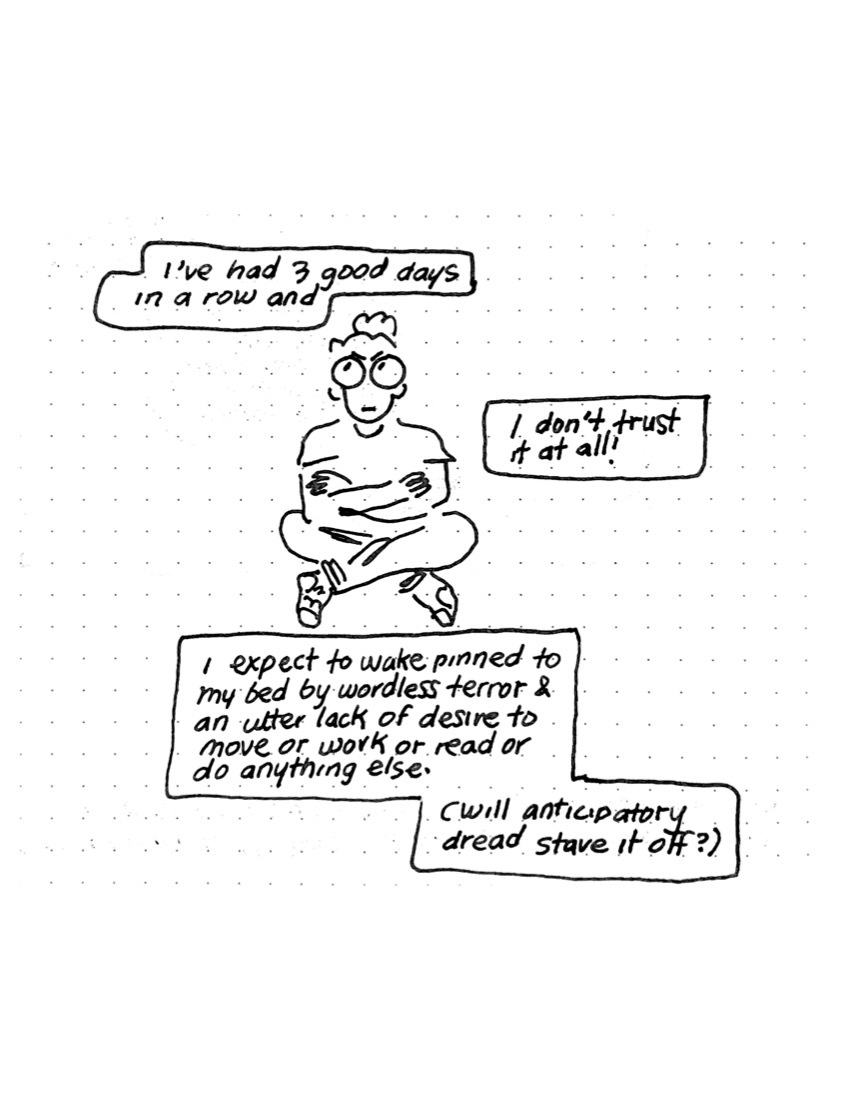 I've had 3 good days
in a row and
I don't trust
it at all!
I expect to wake pinned to
my bed by wordless terror &
an utter lack of desire to
move or work or read or
do anything else.
(will anticipatory
dread stave it off?)